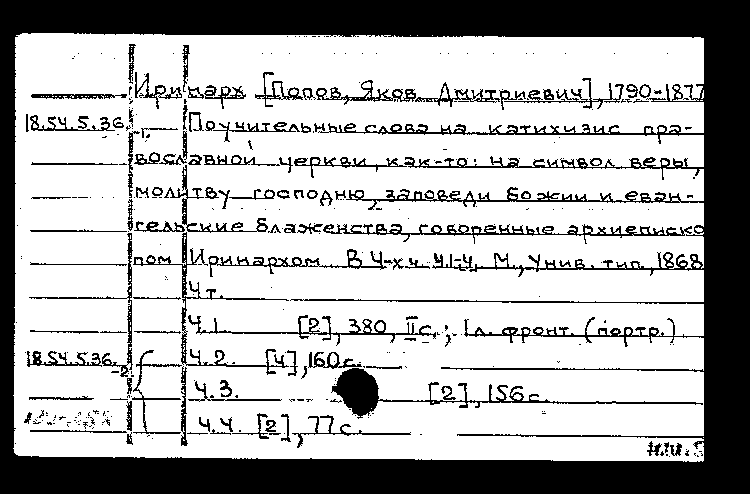 Иринарх [Попов, Яков Дмитриевич], 1790-1877
18.54.5.36.-1. Поучительные слова на катихизис пра-
вославной церкви, как-то: на символ веры,
молитву господню, заповеди божии и еван-
гельские блаженства, говоренные архиеписко
пом Иринархом В 4-х ч. Ч.1-4, М., Унив. тип., 1868
4 т.
Ч.1. [2], 380, II с.; 1 л. фронт. (портр.)
18.54.5.36.-2 Ч.2. [4], 160 с.
Ч.3. [2], 156 с.
Ч.4. [2], 77 с.